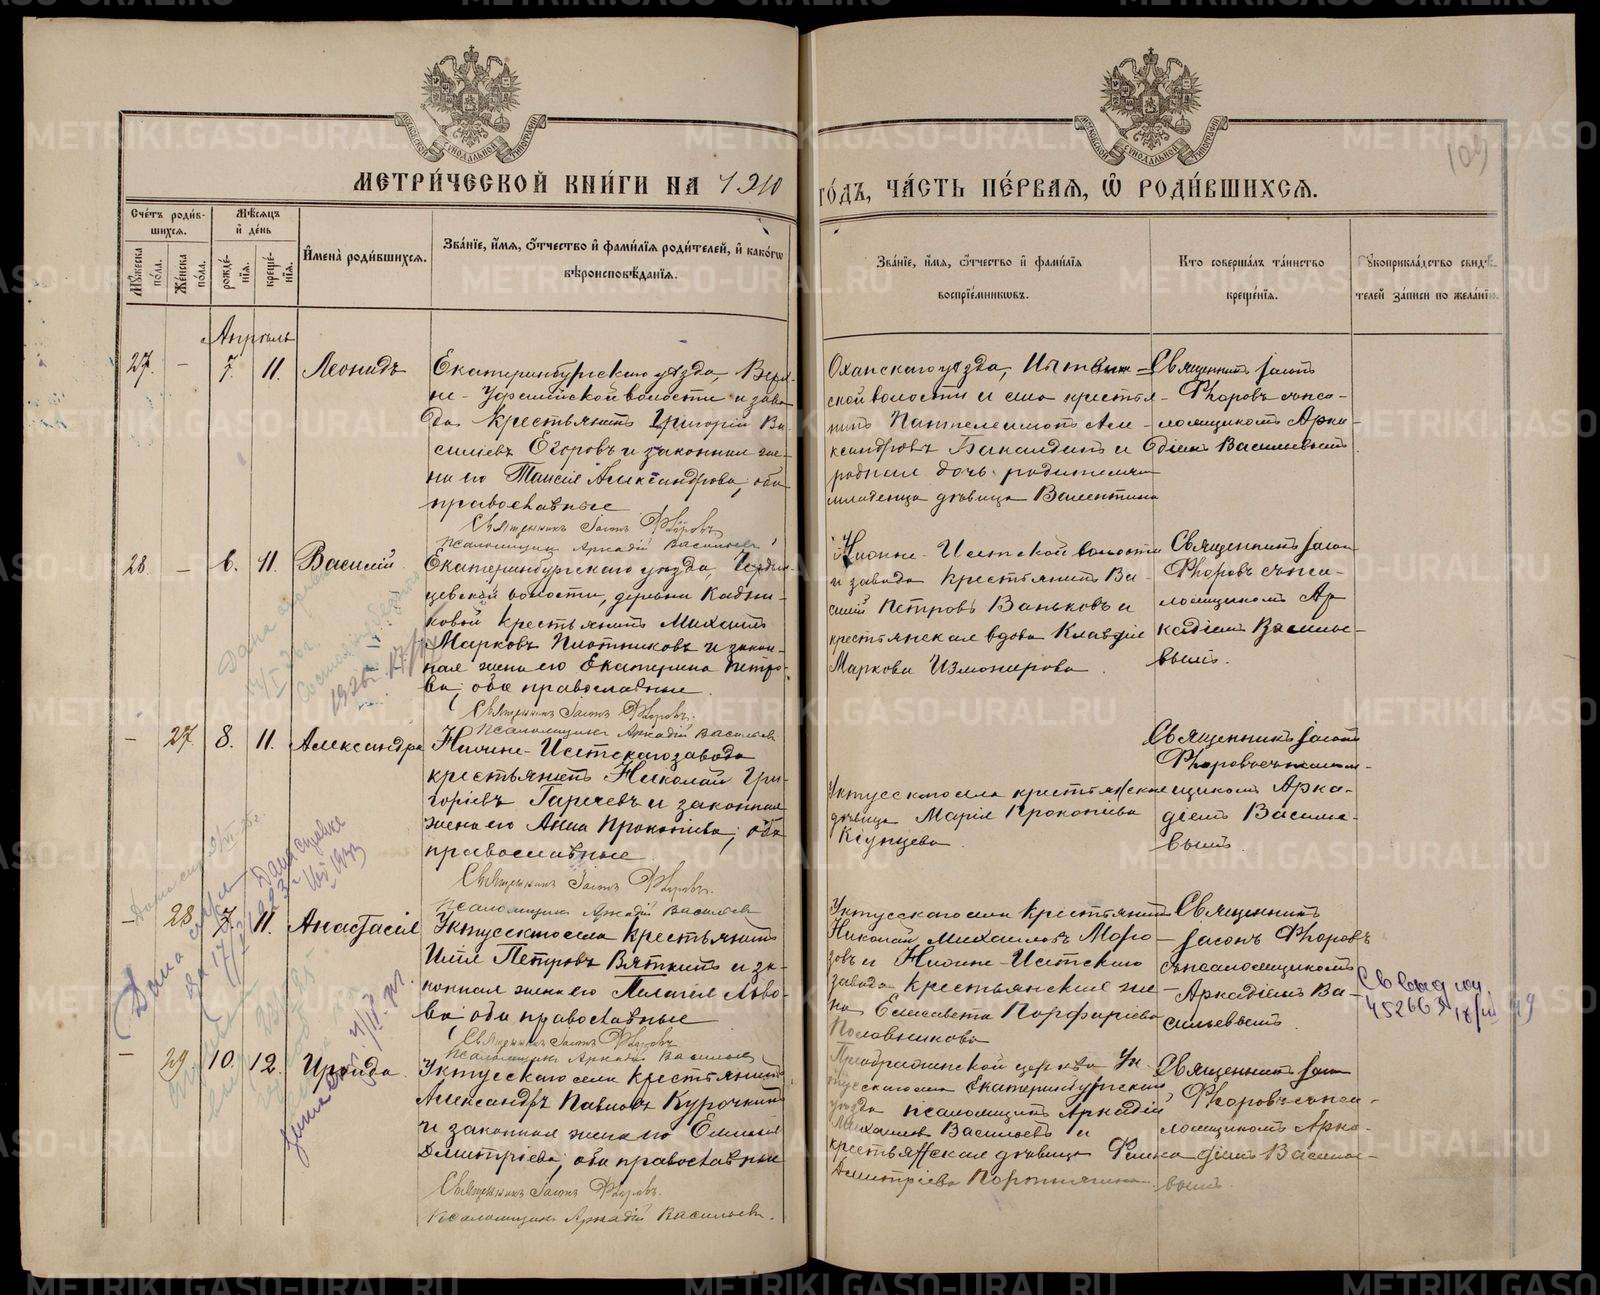 МЕТРИ́ЧЕСКОЙ КНИ́ГИ НА 1910
ГО́ДЪ, ЧА́СТЬ ПЕ́РВАЯ, Ѿ РОДИ́ВШИХСЯ.
109
Сче́тъ роди́в-
шихся.
Мѣ́сяцъ
и҆ де́нь
Мꙋ́жеска
по́ла.
Же́нска
по́ла.
рожде́-
нїя.
креще́-
нїя.
И҆мена̀ роди́вшихся.
Зва́нїе, и҆́мя, ѻ҆́тчество и҆ фами́лїя роди́телей, и҆ како́гѡ
вѣроисповѣ́данїя.
Зва́нїе, и҆́мя, ѻ҆́тчество и҆ фами́лїя
воспрїе́мникѡвъ.
Кто соверша́лъ та́инство
креще́нїя.
Рꙋкоприкла́дство свидѣ́-
телей за́писи по жела́нїю.
Апрѣль
27. – 7. 11. Леонидъ
Екатеринбургскаго уѣзда, Верх-
не-Уфалейской волости и заво
да крестьянинъ Григорій Ва-
сильевъ Егоровъ и законная же-
на его Таисія Александрова, оба
православные
Священникъ Іасонъ Флоровъ
Псаломщикъ Аркадій Васильевъ
Оханскаго уѣзда,
ской волости и села крестья-
нинъ Пантелеимонъ Але-
ксандровъ Бакалдинъ и
родная дочь родителей
младенца дѣвица Валентина
Священникъ Іасонъ
Флоровъ съ пса-
ломщикомъ Арка-
діемъ Васильевымъ
28. – 6. 11. Василій
Екатеринбургскаго уѣзда,
волости, деревни Кадни-
ковой крестьянинъ Михаилъ
Марковъ Плотниковъ и закон-
ная жена его Екатерина Петро-
ва, оба православные.
Священникъ Іасонъ Флоровъ.
Псаломщикъ Аркадій Васильевъ
Нижне-Исетской волости
и завода крестьянинъ Ва-
силій Петровъ Ваньковъ и
крестьянская вдова Клавдія
Маркова Измоперова.
Священникъ Іасонъ
Флоровъ съ пса-
ломщикомъ Ар
кадіемъ Василье-
вымъ.
– 27. 8. 11. Александра
Нижне-Исетскаго завода
крестьянинъ Николай Гри-
горьевъ Гаричевъ и законная
жена его Анна Прокопіева, оба
православные.
Священникъ Іасонъ Флоровъ.
Псаломщикъ Аркадій Васильевъ
Уктусскаго села крестьянская
дѣвица Марія Прокопіева
Кіунцева.
Священникъ Іасонъ
Флоровъ съ псалом-
щикомъ Арка-
діемъ Василье-
вымъ.
– 28. 7. 11. Анастасія
Уктусскаго села крестьянинъ
Илія Петровъ Вяткинъ и за-
конная жена его Пелагія Льво-
ва, оба православные
Священникъ Іасонъ Флоровъ
Псаломщикъ Аркадій Васильевъ
Уктусскаго села крестьянинъ
Николай Михаиловъ Моро-
зовъ и Нижне-Исетскаго
завода крестьянская же-
на Елисавета Порфиріева
Половникова
Священникъ
Іасонъ Флоровъ
съ псаломщикомъ
Аркадіемъ Ва-
сильевымъ.
– 29. 10. 12. Ираида
Уктусскаго села крестьянинъ
Александръ Павловъ Курочкинъ
и законная жена его Емилія
Дмитріева, оба православные
Священникъ Іасонъ Флоровъ.
Псаломщикъ Аркадій Васильевъ.
Преображенской церкви Ук-
тусскаго села Екатеринбургскаго
уѣзда псаломщикъ Аркадій
Михаиловъ Васильевъ и
крестьянская дѣвица
Дмитріева
Священникъ Іасонъ
Флоровъ съ пса-
ломщикомъ Арка-
діемъ Василье-
вымъ.
Дана справка
METRIKI.GASO-URAL.RU